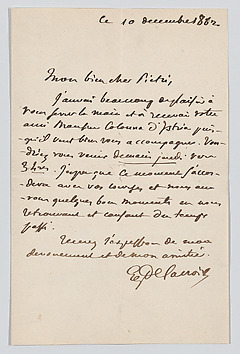 Ce 10 decembre 1882
Mon bien cher Pietri,
J'aurais beaucoup de plaisir à
vous serrer la main et à recevoir votre
ami Monsieur Colonna d'Istria puis-
qu'il veut bien vous accompagner. Vou-
driez vous venir demain jeudi vers
3 heures. J'espère que ce moment s'accor-
dera avec vos courses et nous au-
rons quelques bons moments en nous
retrouvant et causant du temps
passé.
Recevez l'expression de mon
devouement et de mon amitié.